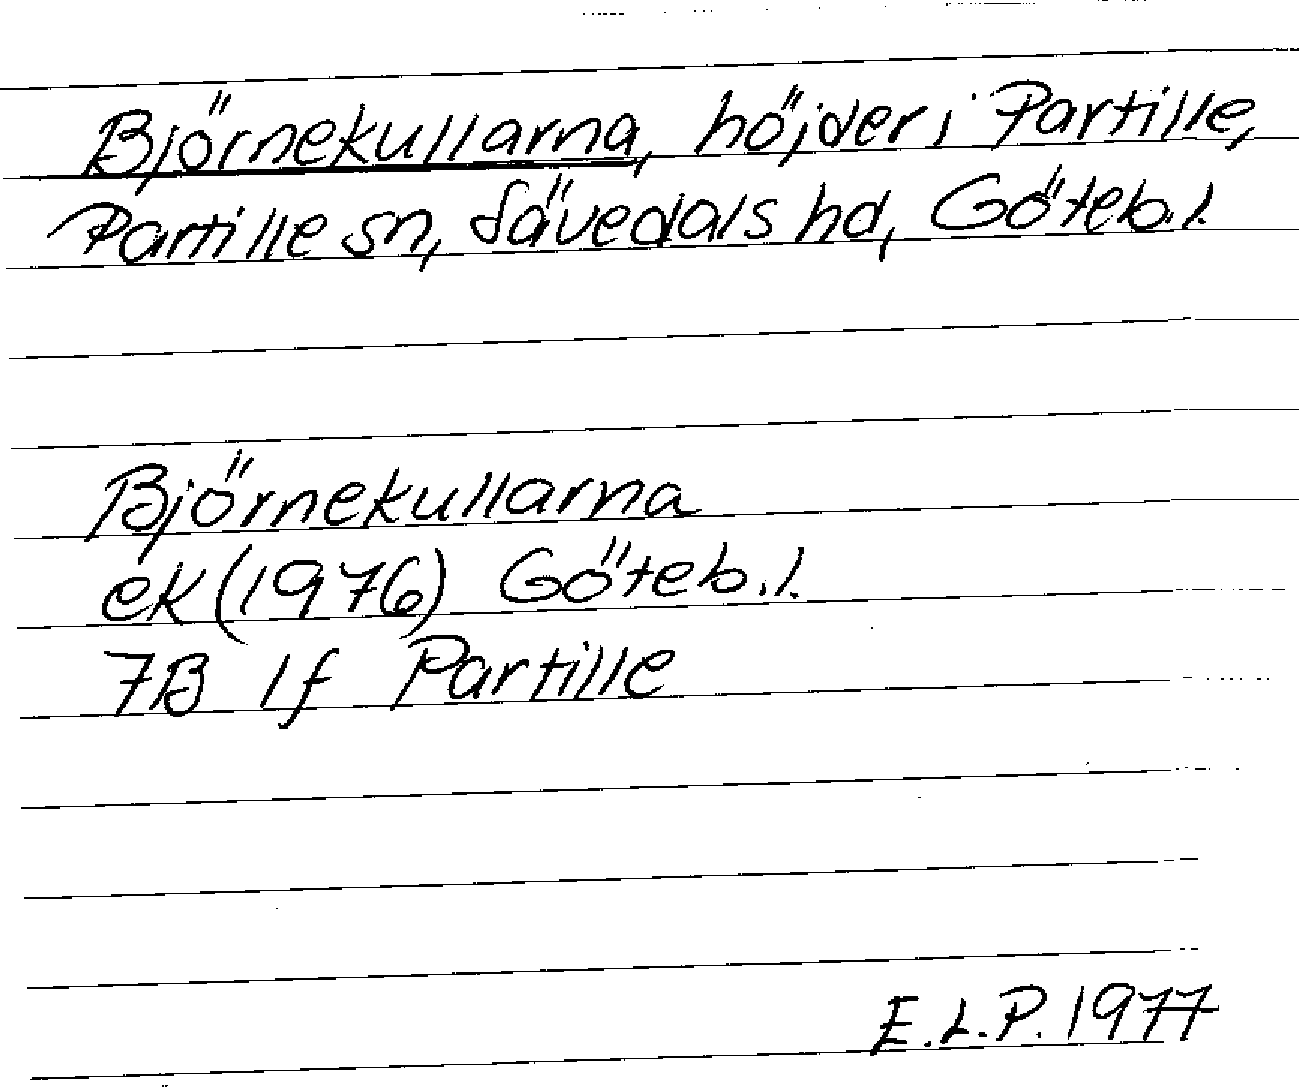 Björnekullarna, höjder i Partille,
Partille sn, Sävedals hd, Göteb.l.
Björnekullarna
ek (1976) Göteb.l.
7B 1f Partille
E.L.P. 1977